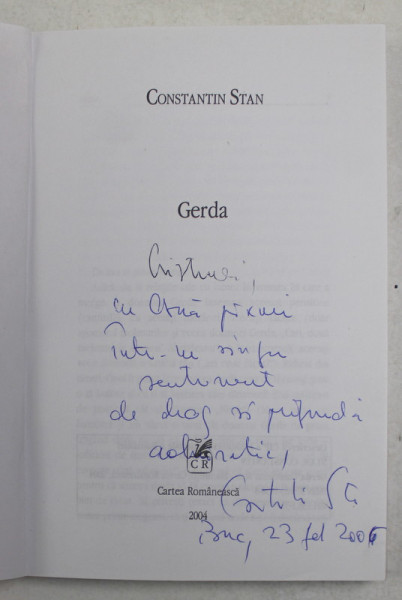 CONSTANTIN STAN
Gerda
Cristinei,
cu două pixuri
într-un singur
sentiment
de drag și profundă
admirație,
CR
Cartea Românească
2004
Constantin Stan
Buc, 23 feb 2006